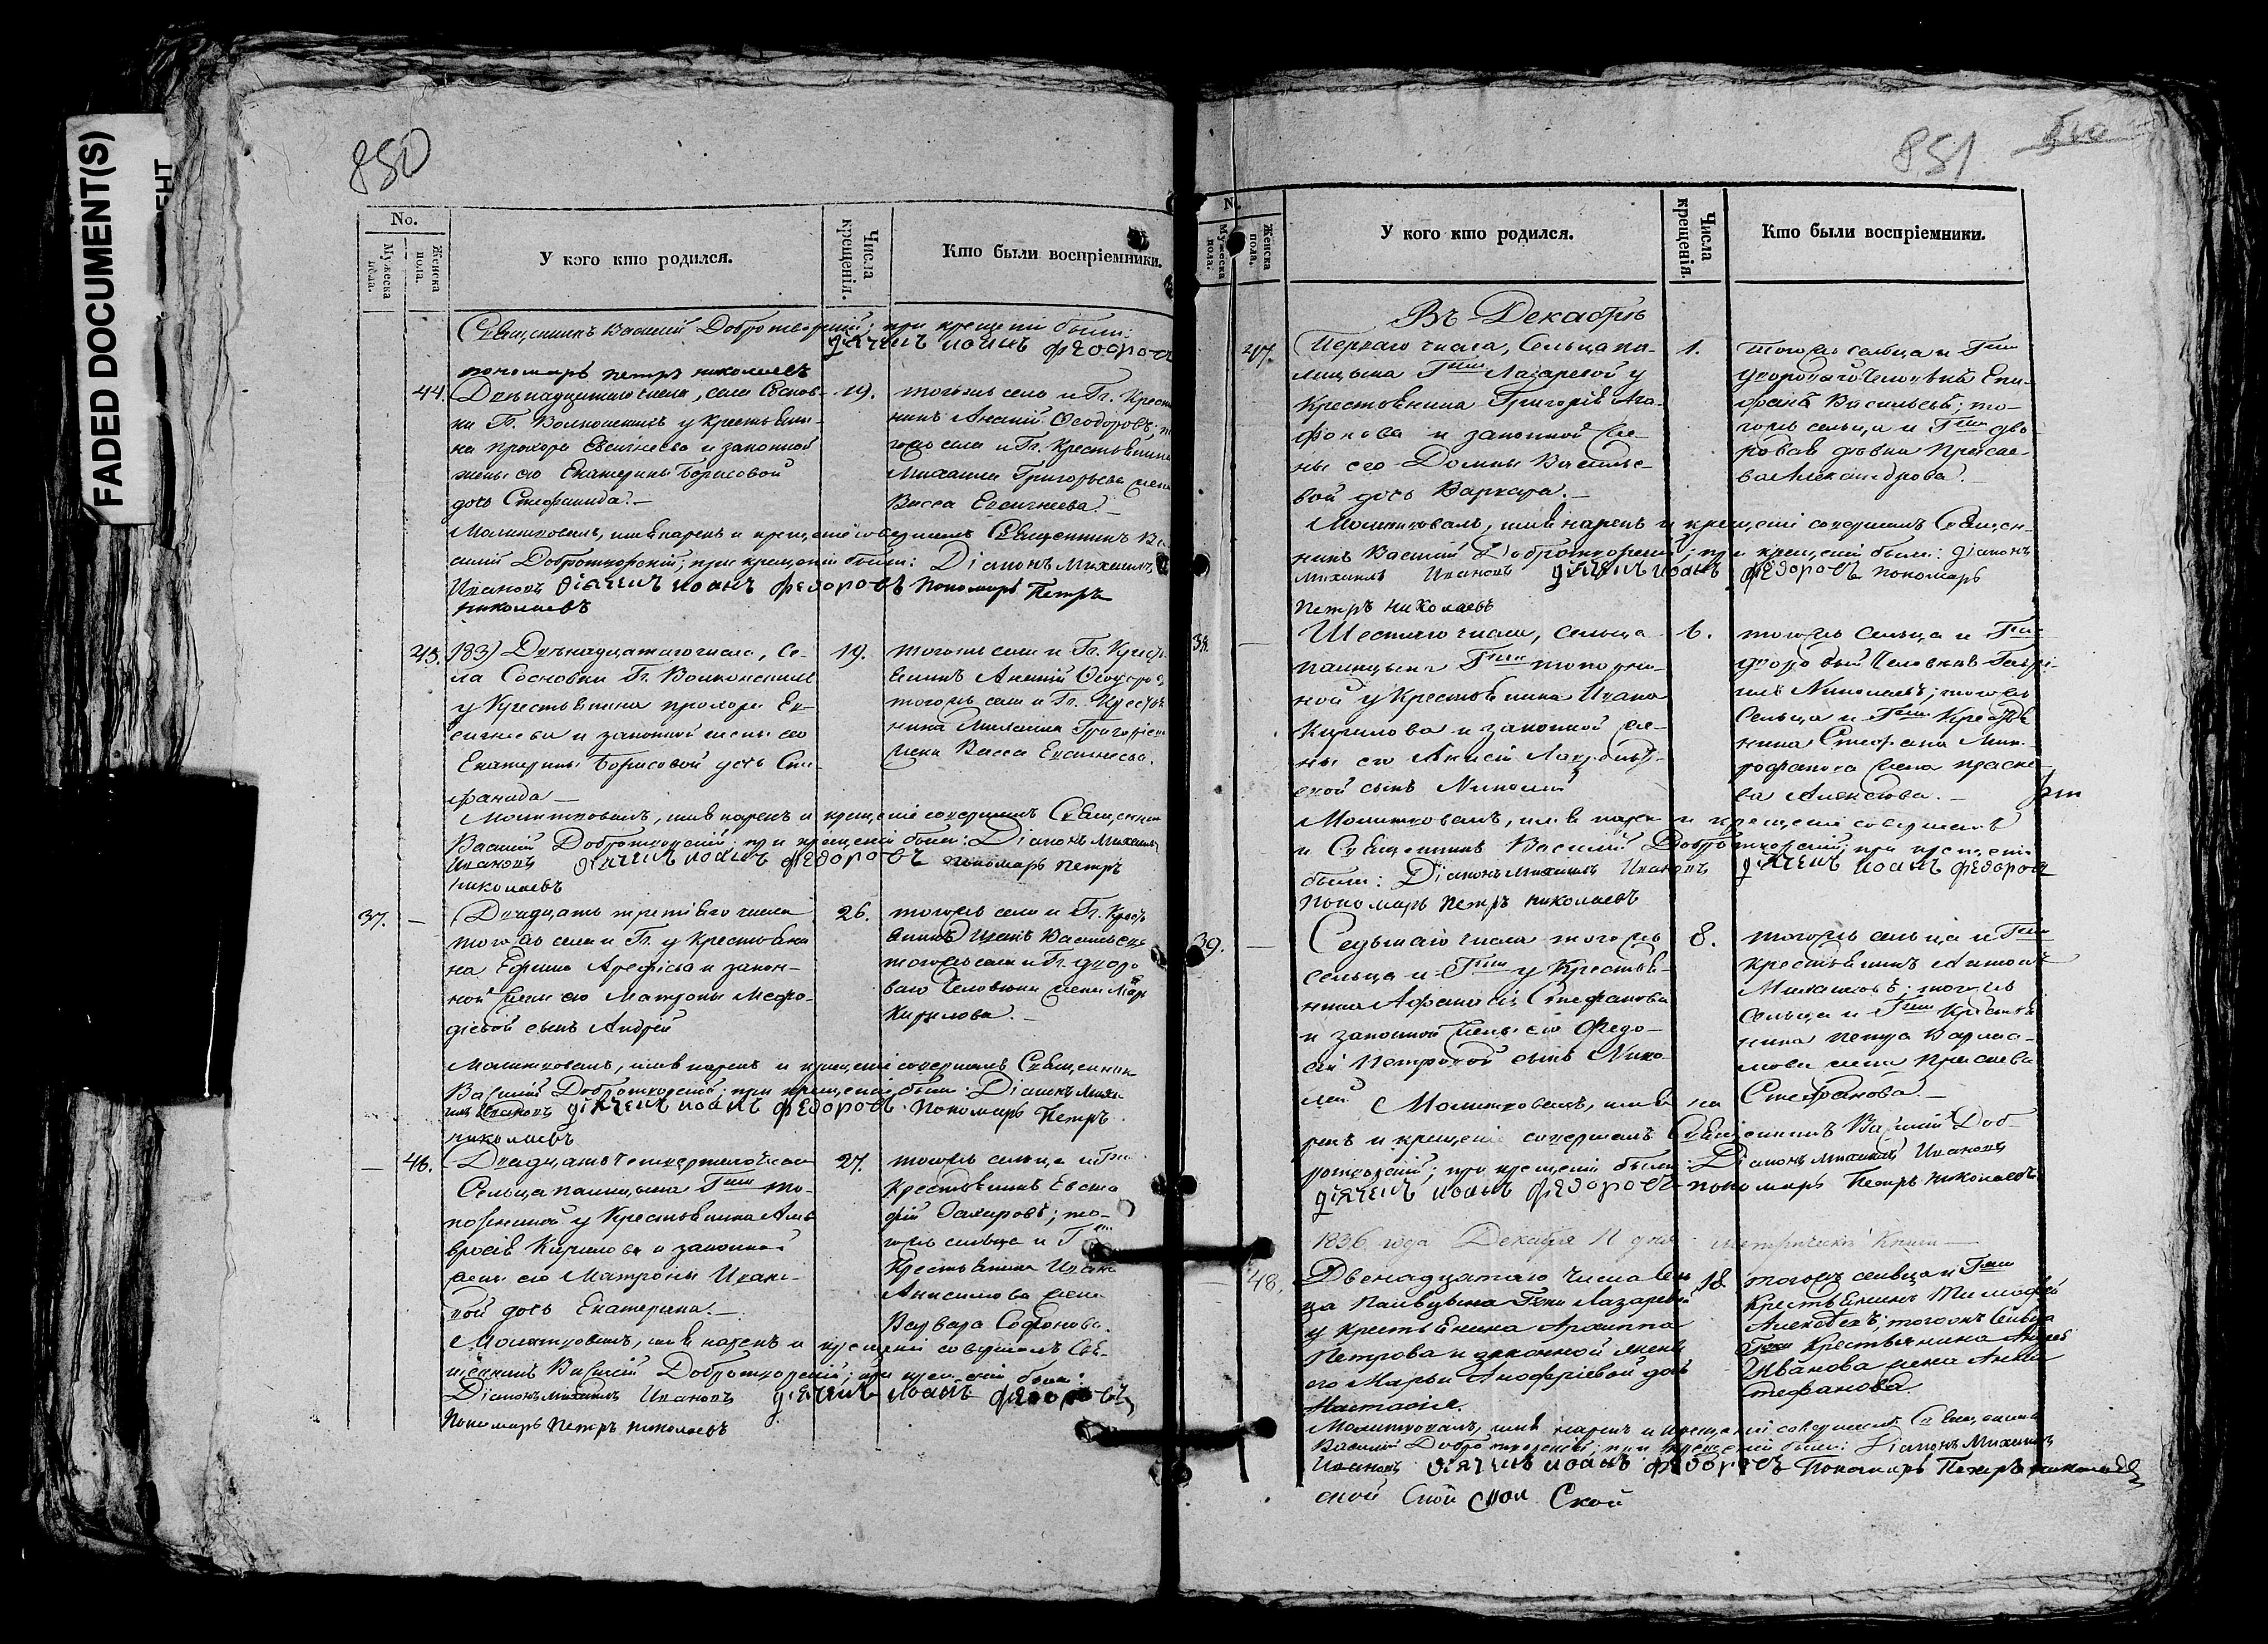 FADED DOCUMENT(S)
850
No.
Мужеска пола.
Женска пола.
У кого кто родился.
Числа крещенія.
Кто были воспріемники.
Священникъ Василій Добротворскій; при крещеніи были:
дiячекъ иоанъ федоровъ
пономарь петръ николаевъ
44.
Двѣнадцатаго числа, села Соснов-
ки Гг. Волконскихъ у крестьяни-
на Прохора Евсигнеева и законной
жены его Екатерины Борисовой
дочь Стефанида.
19.
тогожъ села и Гг. Крест
нинъ Ананій Ѳеодоровъ;
гожъ села и Гг. крестьянина
Михаила Григорьева жена
Васса Евсигнеева.
Молитвовалъ, имя нарекъ и крещеніе совершалъ Священникъ Ва
силій Добротворскій; при крещеніи были: Діаконъ Михаилъ
Ивановъ дiячекъ иоанъ федоровъ пономарь Петръ
николаевъ
45.
183) Двѣнадцатаго числа, Се-
ла Сосновки Гг. Волконскихъ
у Крестьянина Прохора Ев-
сигнеева и законной жены его
Екатерины Борисовой дочь Сте-
фанида
19.
тогожъ села и Гг. Крест
янинъ Ананій Ѳеодоро
тогожъ села и Гг. Крестья
нина Михаила Григорьева
жена Васса Евсигнеева.
Молитвовалъ, имя нарекъ и крещеніе совершалъ Священник
Василій Добротворскій; при крещеніи были: Діаконъ Михаилъ
Ивановъ дiячекъ иоанъ федоровъ пономарь петръ
николаевъ
37.
Двадцать третьяго числа
тогожъ села и Гг. у крестьяни
на Ефима Арефьева и закон-
ной жены его Матроны Мефо-
діевой сынъ Андрей
26.
тогожъ села и Гг. Кресть
янинъ Василье
тогожъ села и Гг. дворо
ваго человека жена
Кирилова.
Молитвовалъ, имя нарекъ и крещеніе совершалъ Священник
Василій Добротворскій; при крещеніи были: Діаконъ Миха
илъ Ивановъ дiячекъ иоанъ федоровъ. пономарь Петръ
николаевъ
46.
Двадцать четвертаго числа
Сельца Паницына Гжи То-
порниной у Крестьянина Ам
вросія Кирилова и законной
жены его Матроны Ивано-
вой дочь Екатерина.
27.
тогожъ сельца и Гжи
Крестьянинъ Евста
фій Захаровъ; то-
гожъ сельца и Гжи
Крестьянина Ивана
Анисимова жена
Варвара Софонова.
Молитвовалъ, имя нарекъ и крещеніе совершалъ Свя-
щенникъ Василій Добротворскій; при крещеніи были:
Діаконъ михаилъ Ивановъ дiячекъ иоанъ федоровъ
Пономарь Петръ николаевъ
851
N.
Мужеска пола.
Женска пола.
У кого кто родился.
Числа крещенія.
Кто были воспріемники.
Въ Декабрѣ
47.
Перваго числа, Сельца Па-
ницына Гжи Лазаревой у
Крестьянина Григорія Ага-
фонова и законной же-
ны его Домны Василье-
вой дочь Варвара.
1.
тогожъ сельца и Гжи
дворовый человѣкъ Епи-
фанъ Васильевъ; то-
гожъ сельца и Гжи дво-
ровая дѣвка Праско-
вья Александрова.
Молитвовалъ, имя нарекъ и крещеніе совершалъ Священ-
никъ Василій Добротворскій; при крещеніи были: діаконъ
михаилъ Ивановъ дiячекъ иоанъ федоровъ пономарь
петръ николаевъ
38.
Шестаго числа, сельца
Паницына Гжи Топорни-
ной у Крестьянина Ивана
Кирилова и законной же-
ны его
сынъ Николай
6.
тогожъ сельца и Гжи
дворовый человѣкъ Гаври-
илъ Николаевъ; тогожъ
Сельца и Гжи Крестья
нина Стефана Мит-
рофанова жена праско
вья Алексѣева.
Молитвовалъ, имя нарекъ и крещеніе совершалъ
и Священникъ Василій Добротворскій; при крещеніи
были: Діаконъ Михаилъ Ивановъ дiячекъ иоанъ федоровъ
пономарь петръ николаевъ
39.
Седьмаго числа тогожъ
сельца и Гжи у Крестья-
нина Афанасія Стефанова
и законной жены его Федо-
сіи Петровой сынъ Нико-
лай
8.
тогожъ сельца и Гжи
крестьянинъ
тогожъ
Сельца и Гжи Крестья
нина Петра Варла-
мова жена Прасковья
Стефанова.
Молитвовалъ, имя на
рекъ и крещеніе совершалъ Священникъ Василій Доб-
ротворскій; при крещеніи были: Діаконъ михаилъ Ивановъ
дiячекъ иоанъ федоровъ пономарь Петръ николаевъ
1836 года Декабря 11 дня
48.
Двенадцатаго числа Сель
ца Паницына Гжи Лазаревой
у крестьянина Архиппа
Петрова и законной жены
его Марьи Аноѳріевой дочь
18
тогожъ сельца и Гжи
Крестьянинъ Тимофей
Алексѣевъ; тогожъ Сельца
Гжи Крестьянина Андрея
Иванова жена
Стефанова.
Молитвовалъ, имя нарекъ и крещеніе совершалъ Священникъ
Василій Добротворскій; при крещеніи были: Діаконъ Михаилъ
Ивановъ дiячекъ иоанъ федоровъ Пономарь Петръ николаевъ